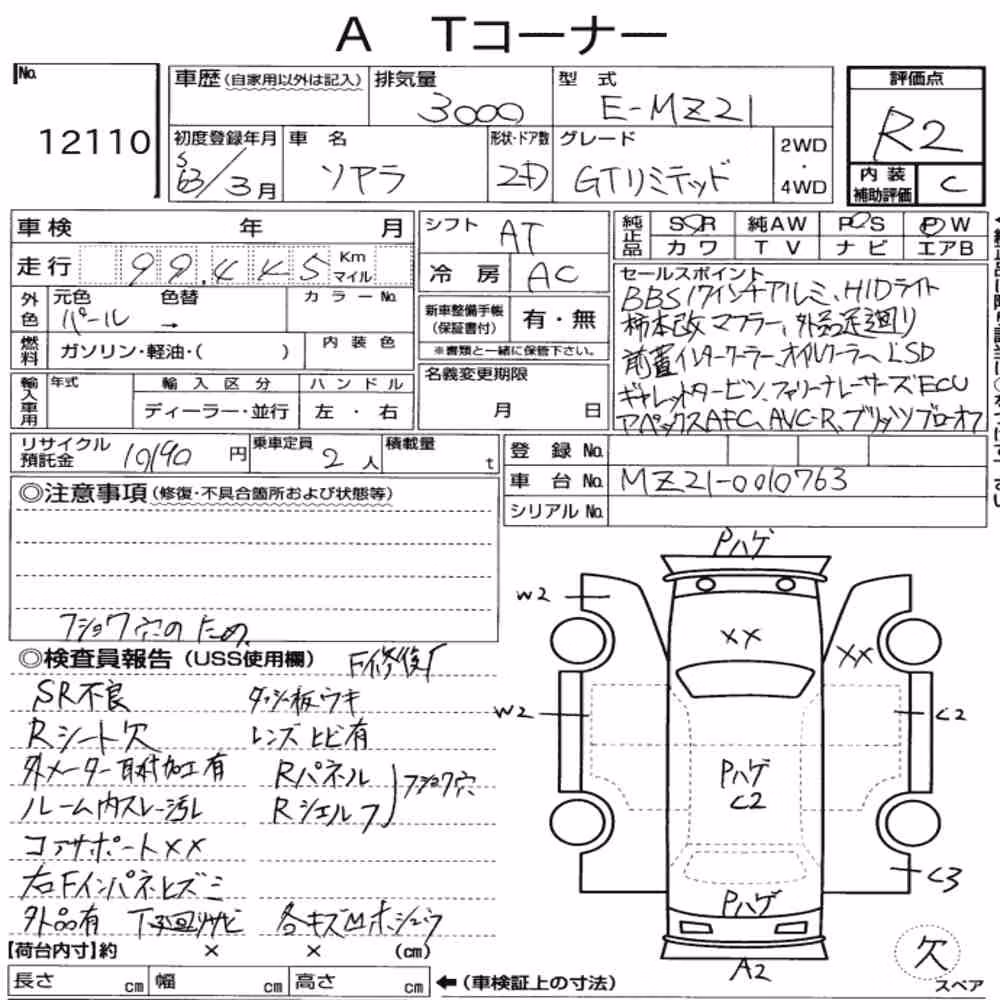 A Tコーナー
No. 12110
車歴(自家用以外は記入)
排気量 3000
型式 E-MZ21
評価点 R2
内装補助評価 C
初度登録年月 S63/3月
車名 ソアラ
形状・ドア数 2D
グレード GTリミテッド
2WD・4WD
車検 年 月
走行 99,445 Km マイル
シフト AT
冷房 AC
純正品 SR 純AW PS PW
カワ TV ナビ エアB
外色 元色 パール 色替 →
カラーNo.
燃料 ガソリン・軽油・( )
内装色
新車整備手帳(保証書付) 有・無
※書類と一緒に保管下さい。
輸入車用 年式 輸入区分 ハンドル
ディーラー・並行 左・右
名義変更期限
月 日
セールスポイント
BBS17インチアルミ、HIDライト
柿本改マフラー、外品足廻り
前置インタークーラー、オイルクーラー、LSD
ギャレットタービン、ファリーナレーサーズECU
アペックスAFC、AVC-R、ブリッツブローオフ
リサイクル預託金 10190円
乗車定員 2人
積載量 t
登録No.
車台No. MZ21-0010763
シリアルNo.
◎注意事項(修復・不具合箇所および状態等)
フショク穴のため
◎検査員報告(USS使用欄) F修復有
SR不良 ダッシュ板ウキ
Rシート欠 レンズヒビ有
外メーター取付加工有 Rパネル
ルーム内スレ汚レ Rシェルフ フショク穴
コアサポートXX
右Fインパネヒズミ
外品有 下廻リサビ 各キズ凹ホシュウ
【荷台内寸】約 × × (cm)
長さ cm 幅 cm 高さ cm ←(車検証上の寸法)
Pハゲ
W2
XX
XX
W2
C2
Pハゲ
C2
C3
Pハゲ
A2
欠
スペア